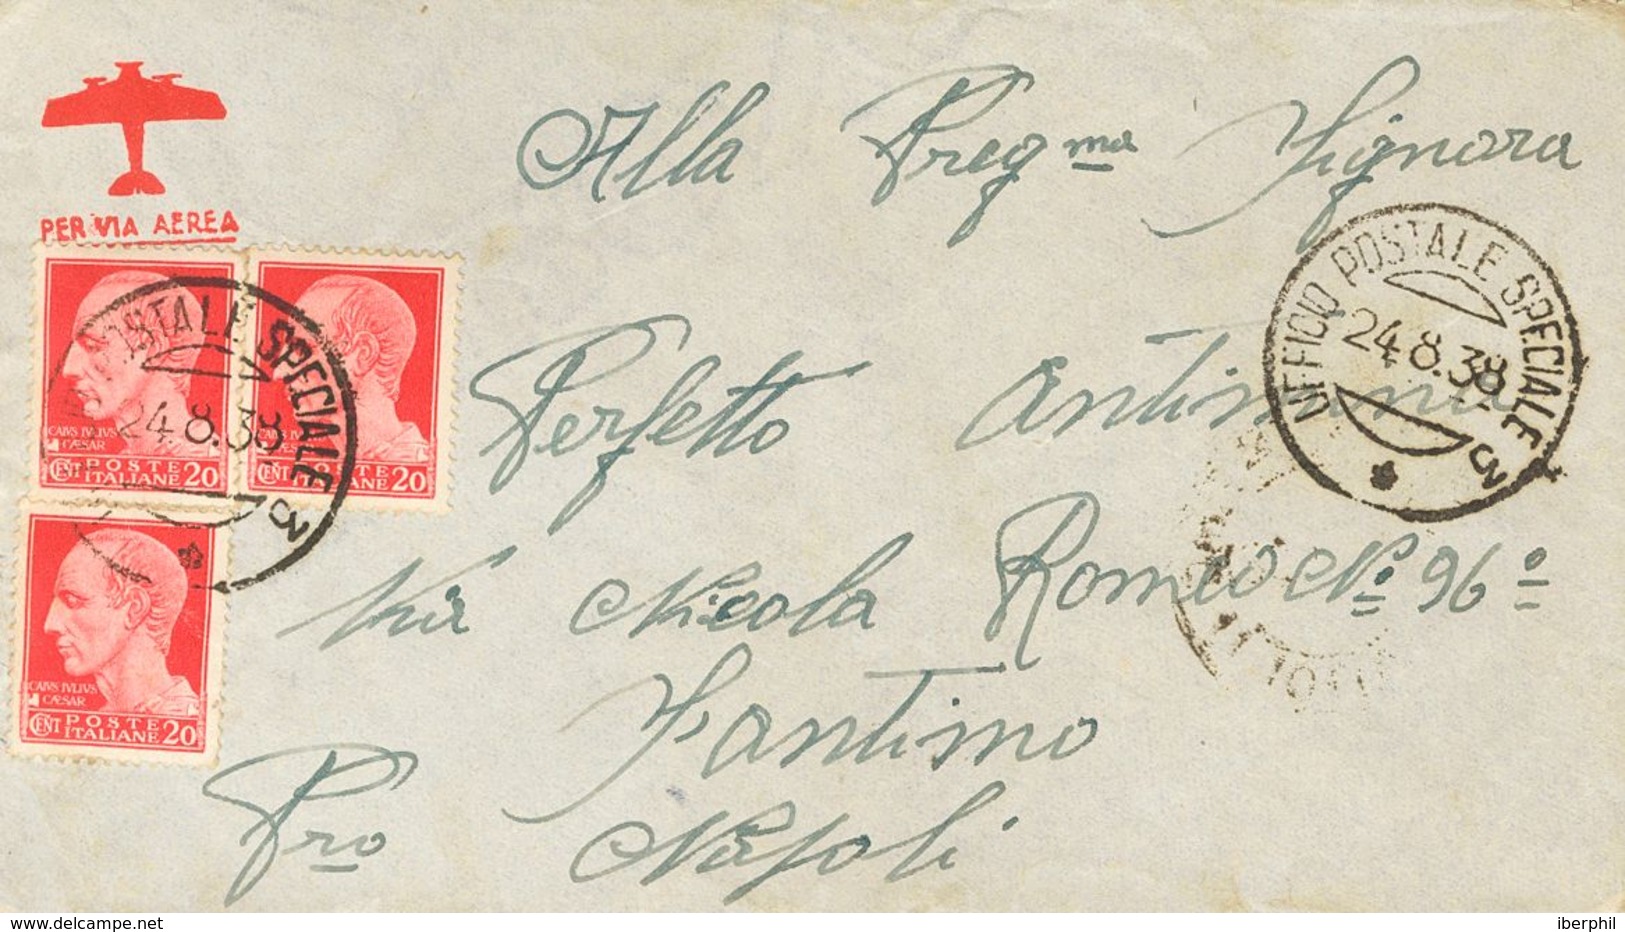 Alla Preg.ma Signora
PER VIA AEREA
UFFICIO POSTALE SPECIALE 3
24.8.38
POSTALE SPECIALE 3
24.8.38
CAIVS IVLIVS
CÆSAR
CENT POSTE ITALIANE 20
CAIVS IVLIVS
CÆSAR
CENT POSTE ITALIANE 20
Perfetto Antimina
Via Nicola Romeo No 96o
CAIVS IVLIVS
CÆSAR
CENT POSTE ITALIANE 20
Santimo
Pro Napoli
www.delcampe.net
iberphil